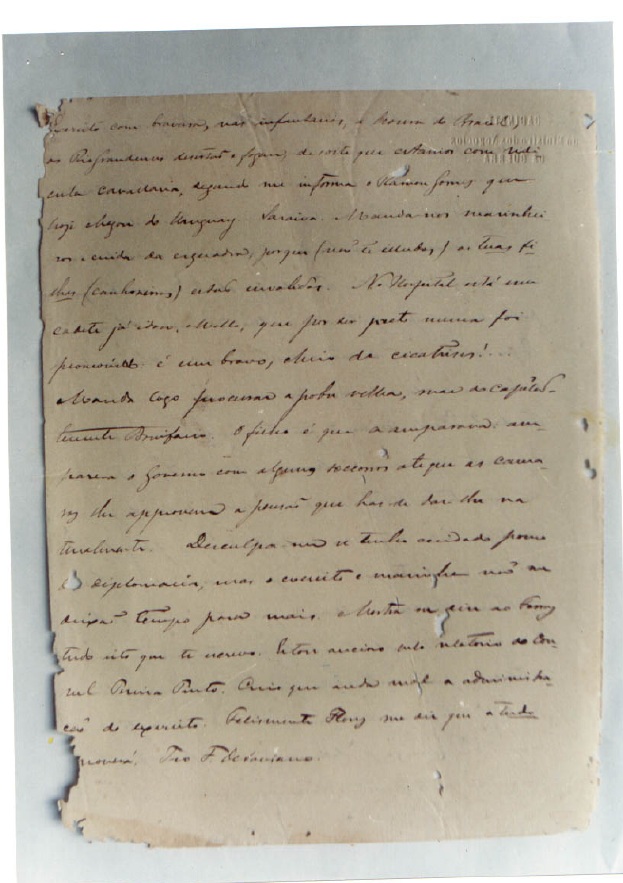 exercito com bravura, nas infantarias, a honra do Brasil;
os RioGrandenses desertão e fogem, de sorte que estamos com redi
cula cavallaria, segundo me informa o Ramon Gomes que
hoje chegou do Uruguay. Saraiva. Manda-nos marinhei
ros e cuida da esquadra, porque (não te illudas) as tuas fi
lhas (canhoneiras) estão invalidas. No Hospital está um
cadete já idoso, Mello, que por ser preto nunca foi
promovido é um bravo, cheio de cicatrizes!...
Manda logo procurar a pobre velha, mae do capitão-
tenente Bonifacio. O filho é que a amparava: am-
pare-a o Governo com alguns soccorros até que as cama-
ras lhe approvem a pensão que has de dar-lhe na
turalmente. Desculpa-me se tenho cuidado pouco
da diplomacia, mas o exercito e marinha não me
deixão tempo para mais. Mostra ou diz ao
tudo isto que te escrevo. Estou ancioso pelo relatorio do Con-
sul Pereira Pinto. Creio que anda mal a administra-
ção do exercito. Felizmente me diz que a tudo
moverá. Teo F. Octaviano.